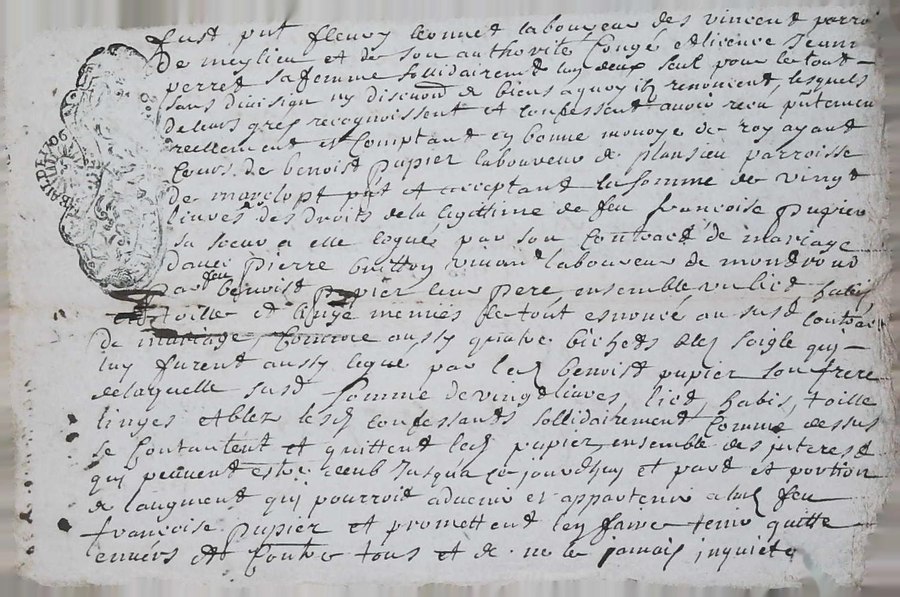 fust pnt fleury leonnet laboureur des vincent parroi
de meylieu et de son authorité congé et licence Jeanne
perret sa femme sollidairement luy deux seul pour le tout
sans division ny discution de biens a quoy ilz renoncent, lesquels
de leurs grés recognoissent et confessent avoir receu pntement
reellement et comptant en bonne monoye de roy ayant
cours, de benoist papier laboureur de plansieu parroisse
de marclopt pnt et acceptant la somme de vingt
livres des droits de la legittime de feu françoise pupier
sa soeur a elle legués par son contract de mariage
avec pierre vivant laboureur de mondrond
par feu benoist pupier leur pere ensemble un lied habis
toille et linge menues le tout enoncé au susd contrac
de mariage, comme aussy quatre bichets bled seigle qui
luy furent aussy legué par led benoist pupier son frere
de laquelle susd somme de vingt livres, lied, habis, toille
linges et bled lesd confessants sollidairement comme dessus
se contantent et quittent led pupier ensemble des interest
qui peuvent estre deub jusqua ce jourdhuy et part et portion
de laugment qui pourroit advenir et appartenir a lad feu
françoise pupier et promettent len faire tenir quitte
envers et contre tous et de ne le jamais inquiete